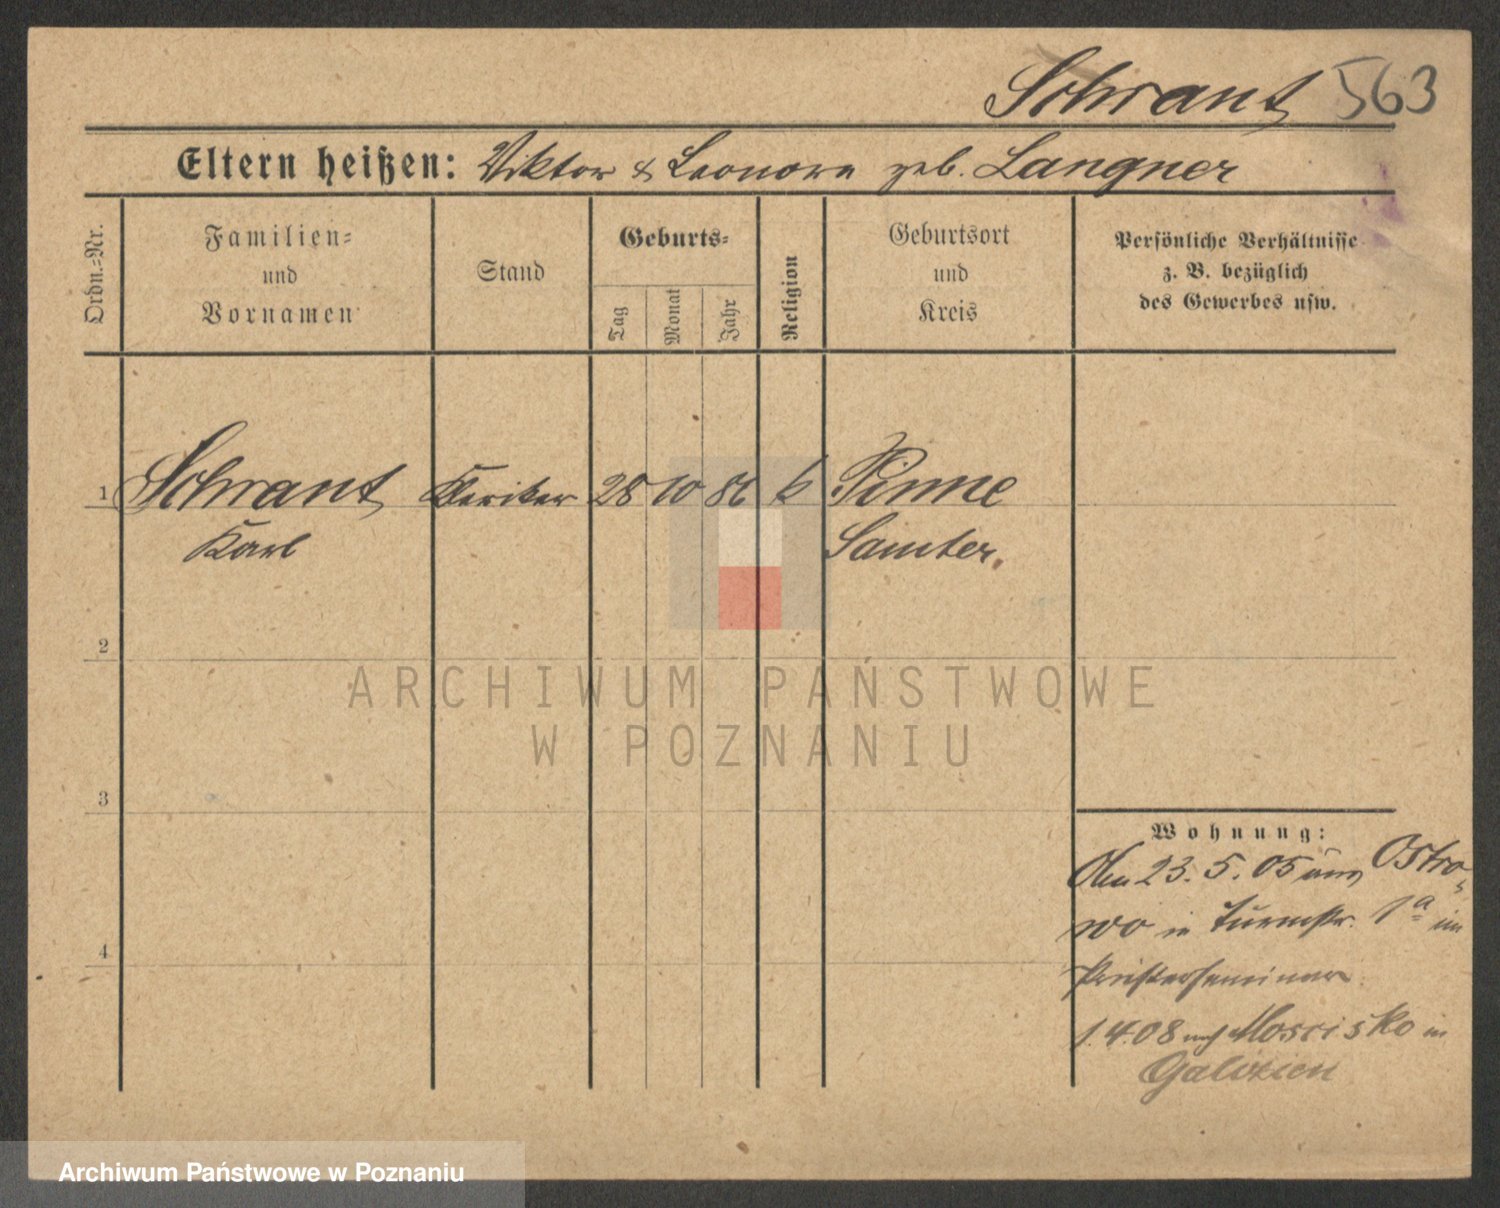 Schrant 563
Eltern heißen: Viktor & Leonora geb. Langner
Ordn.=Nr.
Familien=
und
Vornamen
Stand
Geburts=
Tag
Monat
Jahr
Religion
Geburtsort
und
Kreis
Persönliche Verhältnisse
z. B. bezüglich
des Gewerbes usw.
1 Schrant Kleriker 28 10 86 k Pinne
Karl Samter.
2
3
4
Wohnung:
23. 5. 05 Ostro-
wo in Turmstr. 1a im
Priesterseminar
1.4.08 nach Moscisko in
Galizien
ARCHIWUM PAŃSTWOWE
W POZNANIU
Archiwum Państwowe w Poznaniu